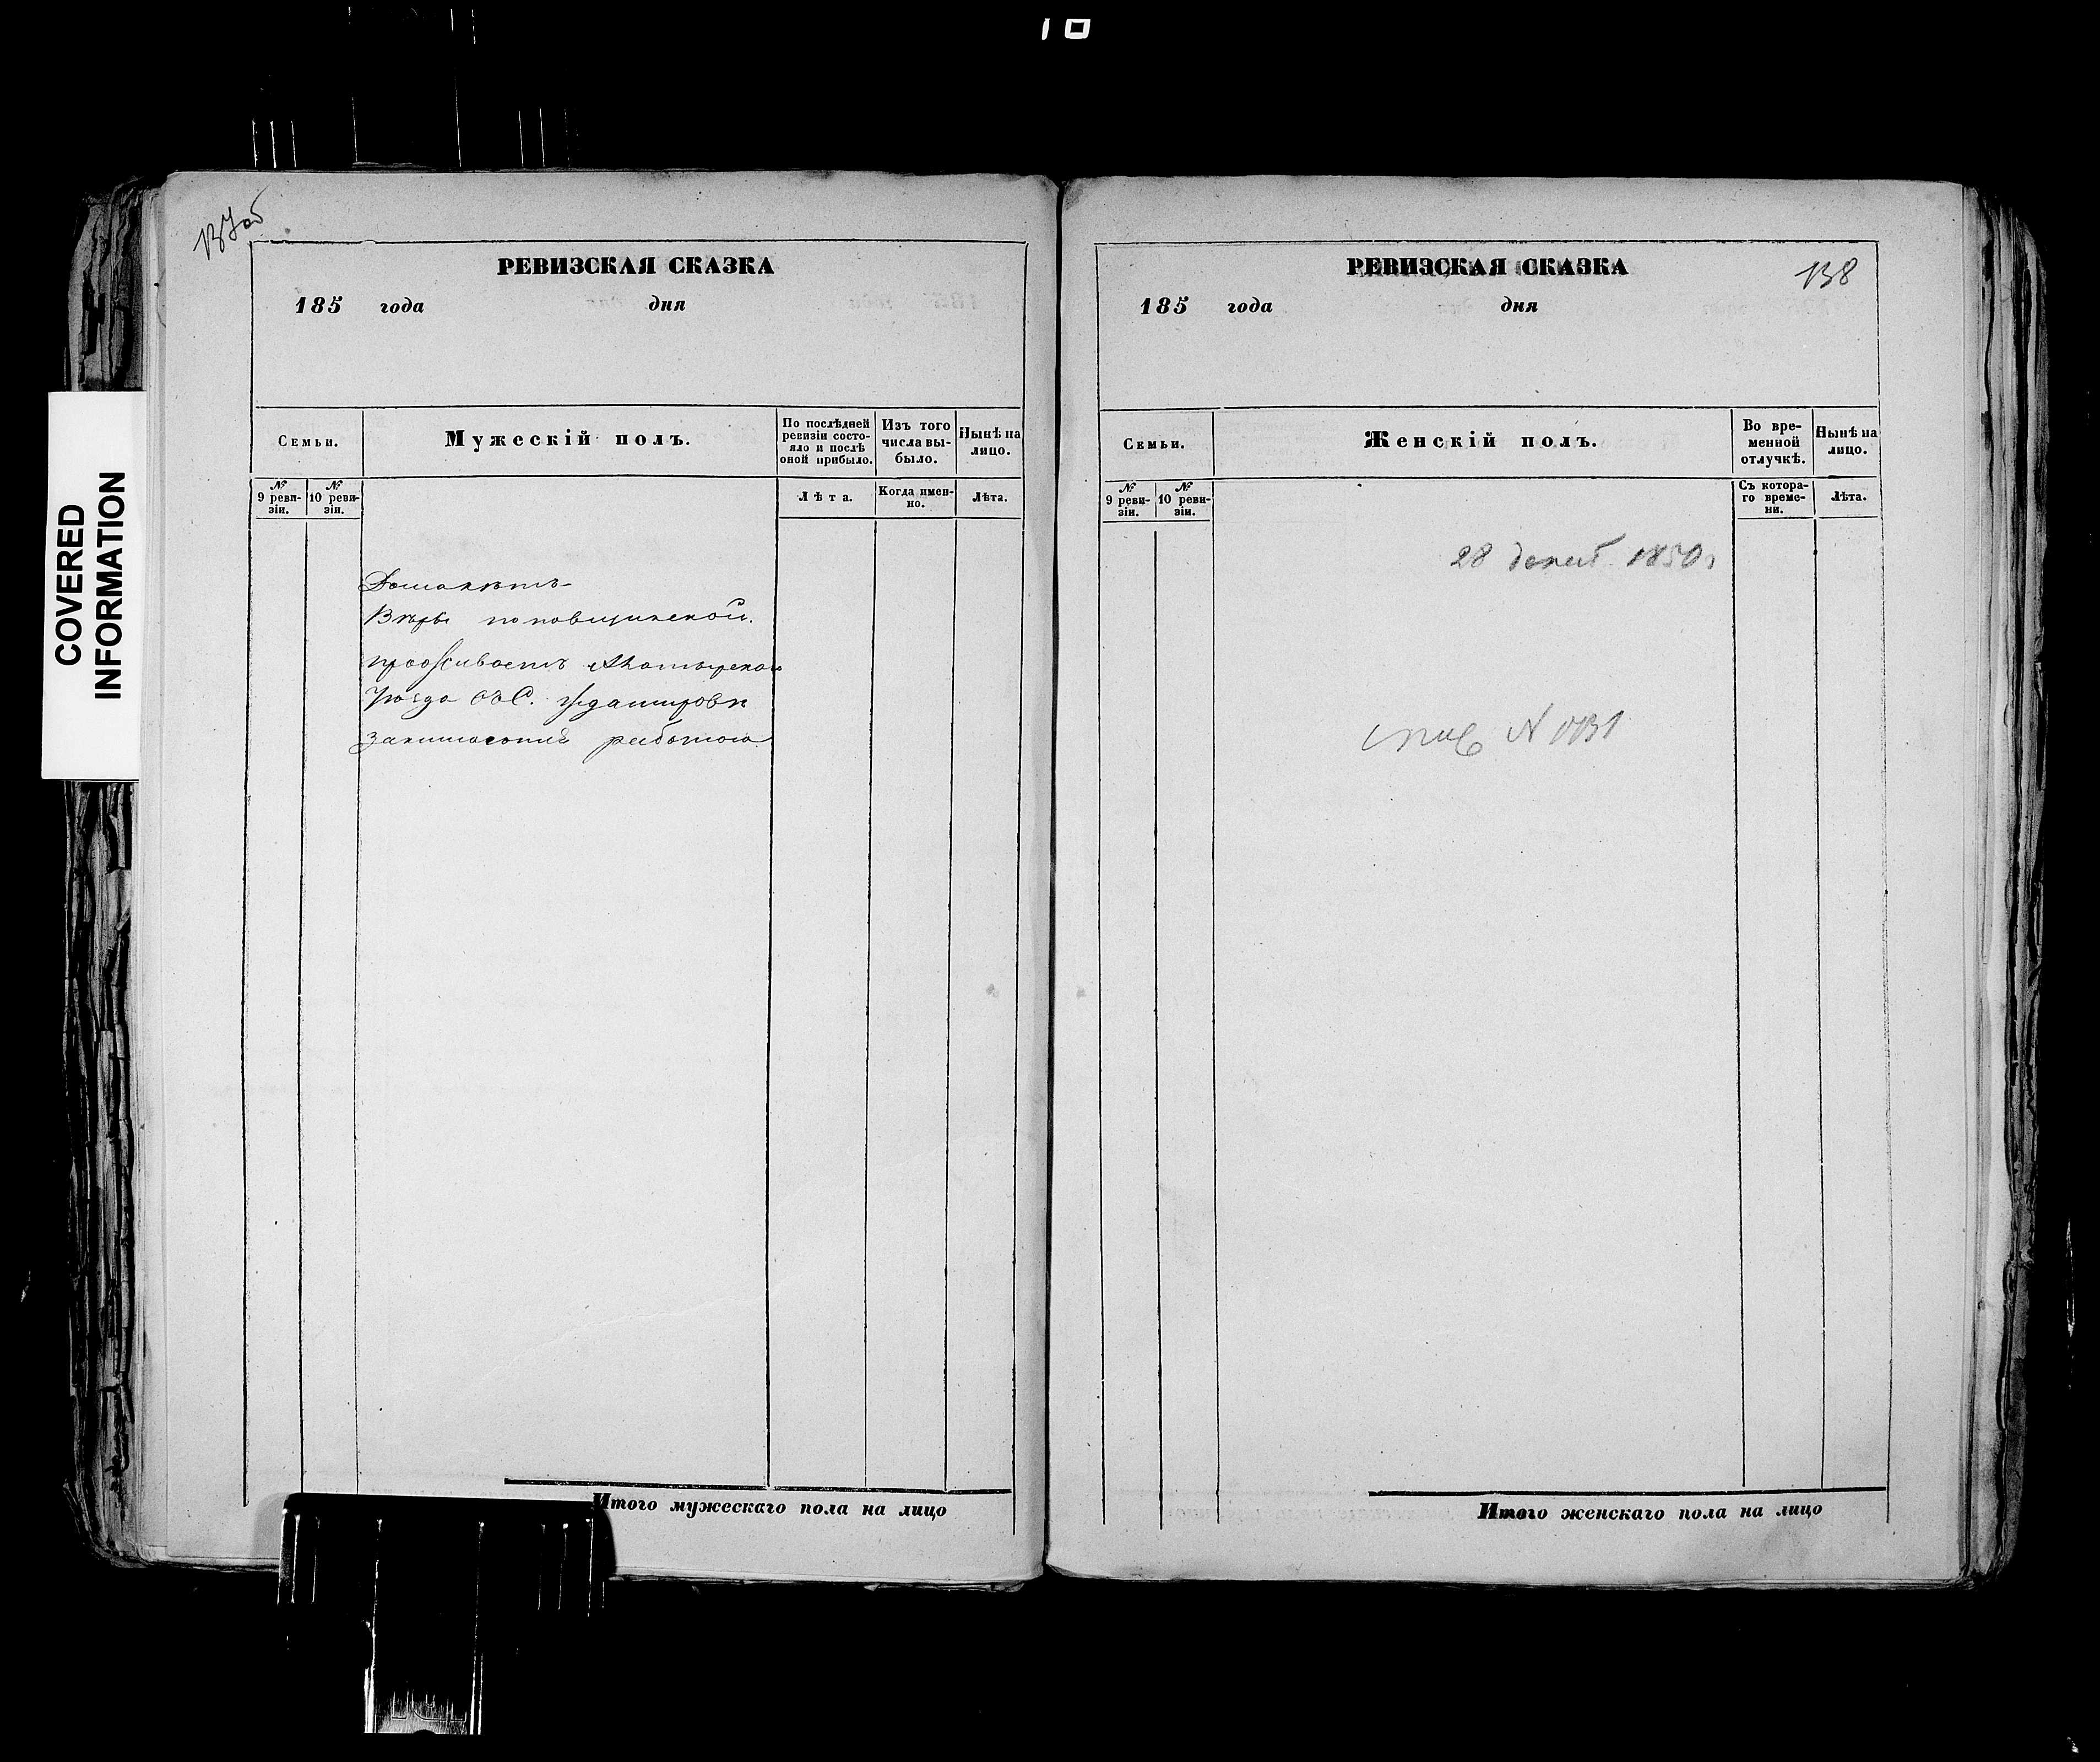 10
137об
РЕВИЗСКАЯ СКАЗКА
185 года дня
Семьи.
Мужескій полъ.
По послѣдней ревизіи состояло и послѣ оной прибыло.
Изъ того числа выбыло.
Нынѣ на лицо.
№ 9 ревизіи.
№ 10 ревизіи.
Лѣта.
Когда именно.
Лѣта.
Дома нѣтъ
Вѣры поповщинской.
проживаетъ Ахтырскаго
Уѣзда въ С.
занимается работою
Итого мужескаго пола на лицо
COVERED
INFORMATION
138
РЕВИЗСКАЯ СКАЗКА
185 года дня
Семьи.
Женскій полъ.
Во временной отлучкѣ.
Нынѣ на лицо.
№ 9 ревизіи.
№ 10 ревизіи.
Съ котораго времени.
Лѣта.
28 1850г
N 1131
Итого женскаго пола на лицо